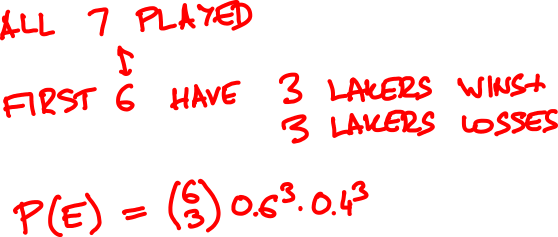 ALL 7 PLAYED
↕
FIRST 6 HAVE 3 LAKERS WINS+
3 LAKERS LOSSES
P(E) = (6 3) 0.6³·0.4³